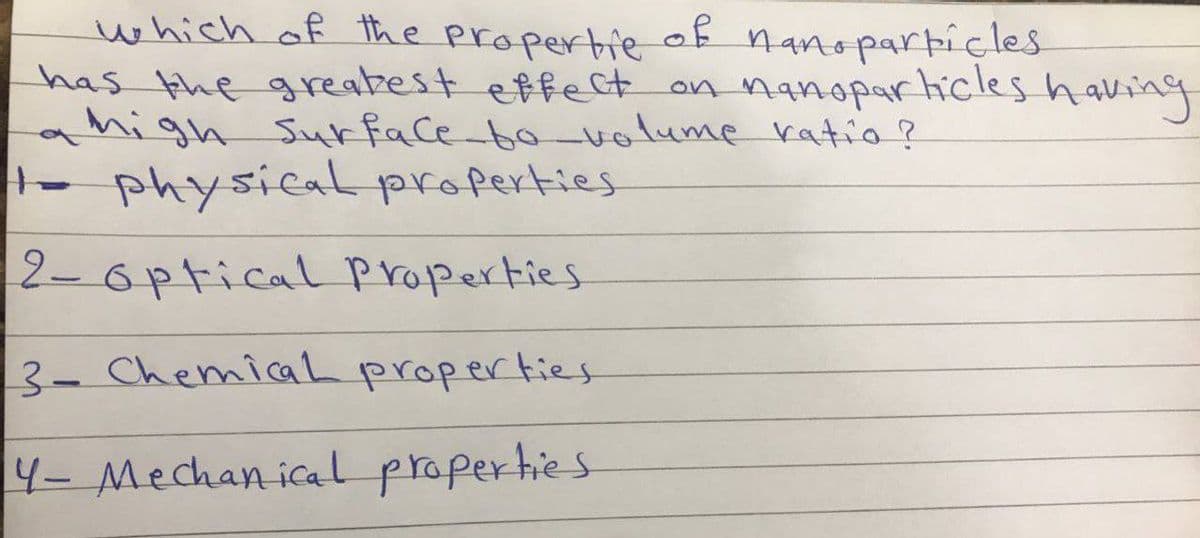 which of the propertie of nanoparticles
has the greatest effect on nanoparticles having
a high surface-to-volume ratio?
1- physical properties
2- optical properties
3- Chemical properties
4- Mechanical properties